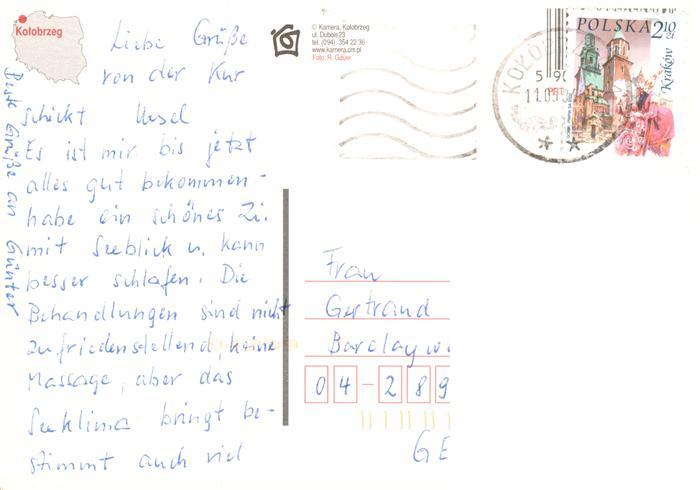 Kołobrzeg
Liebe Grüße
von der Kur
schickt Ursel
Es ist mir bis jetzt
alles gut bekommen -
habe ein schönes Zi.
mit Seeblick u. kann
besser schlafen. Die
Behandlungen sind nicht
zufriedenstellend, keine
Massage, aber das
Seeklima bringt be-
stimmt auch viel
Beste Grüße an Günter
© Kamera, Kołobrzeg
ul. Dubois23
tel. (094) 354 22 36
www.kamera.crs.pl
Foto: R. Gauer
POLSKA 2 10 zł
Kraków
KOŁO
11.09
Frau
Gertraud
Barclayw
04-289
GE